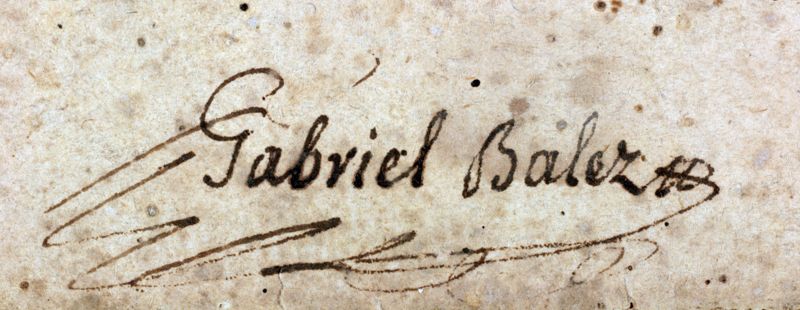 Gabriel Balez